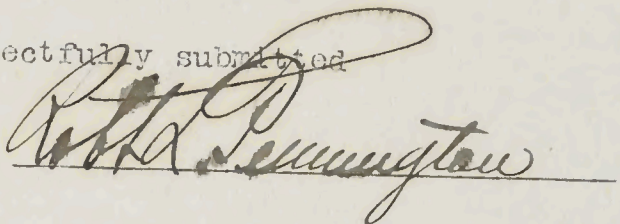 ectfully submitted
Robt L. Pennington